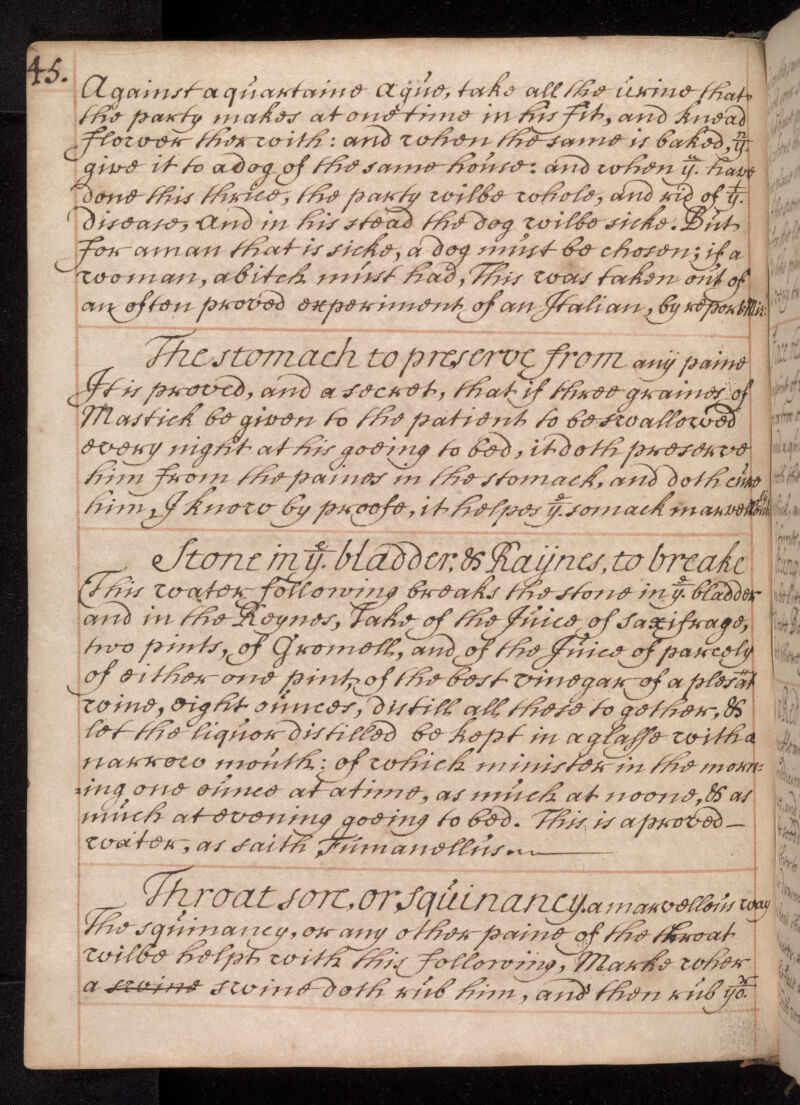 45.
Against a quartaine Ague, take all the urine that
the party makes at one time in his fit, and knead
flower therwith: and when the same is baked, yn.
give it to a dog of the same house: and when yu. have
done this thrice, the party wilbe whole, and rid of yt.
disease, And in his stead the dog wilbe sicke. But
for a man that is sicke, a dog must be chosen; if a
woman, a bitch must had, This was taken out of
an often proved experiment of an Italian, by report
The stomach to preserve from any paine
It is proved, and a secret, that if three graines of
Mastick be given to the patient to be swallowed
every night at his goeing to bed, it doth preserve
him from the paines in the stomack, and doth cure
him, I know by proofe, it helpes ye. somack
Stone in ye. bladder, & Raÿnes, to breake
This water following breaks the stone in ye. bladder
and in the Reynes, Take of the Juice of saxifrage,
two pints, of Gromell, and of the Juice of parcely
of either one pint, of the best vinegar of a plesat
wine, eight ounces, distill all these to gether, &
let the liquor distilled be kept in a glasse with a
narrow mouth: of which minister in the morn=
=ing one ounce at a time, as much at noone, & as
much at evening goeing to bed. This is aproved—
water, as saith Fumanellus.
Throat sore, or squinancy. a marvellous way
The squinancy, or any other paine of the throat
wilbe helpt with this following, Marke wher
a swine swine doth rub him, and then rub yor.